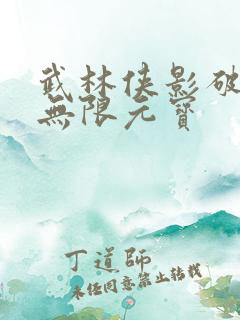 武林侠影破
無限元寶
丁道師
未经同意禁止转载